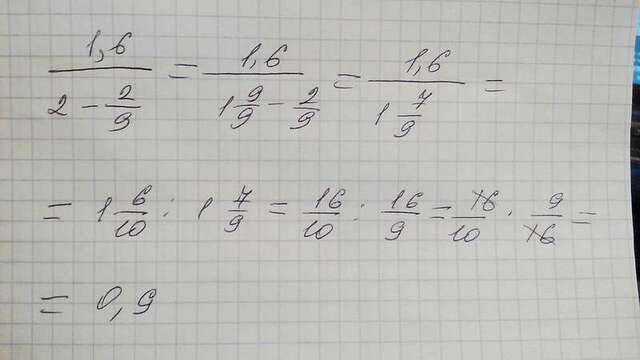 1,6 / (2 - 2/9) = 1,6 / (1 9/9 - 2/9) = 1,6 / (1 7/9) =
= 1 6/10 : 1 7/9 = 16/10 : 16/9 = 16/10 · 9/16 =
= 0,9